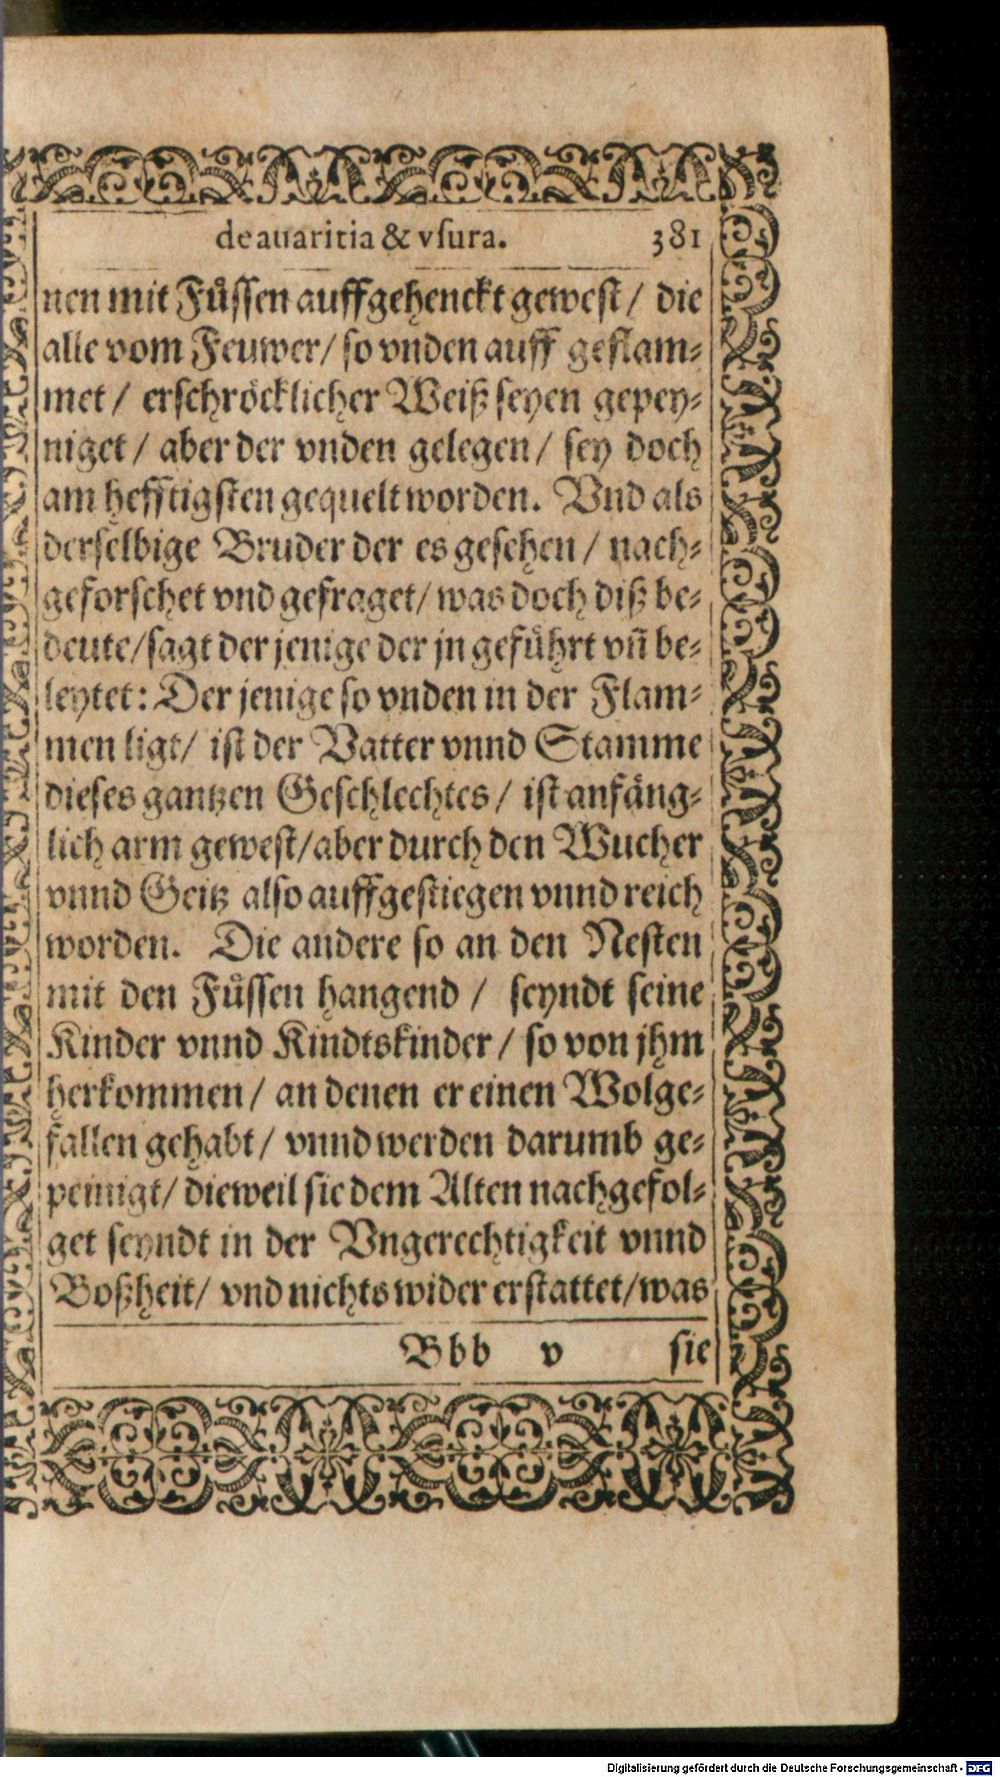 de auaritia & vſura. 381
nen mit Fuͤſſen auffgehenckt geweſt / die
alle vom Feuwer / ſo vnden auff geflam⸗
met / erſchroͤcklicher Weiß ſeyen gepey⸗
niget / aber der vnden gelegen / ſey doch
am hefftigſten gequelt worden. Vnd als
derſelbige Bruder der es geſehen / nach⸗
geforſchet vnd gefraget / was doch diß be⸗
deute / ſagt der jenige der jn gefuͤhrt vñ be⸗
leytet: Der jenige ſo vnden in der Flam⸗
men ligt / iſt der Vatter vnnd Stamme
dieſes gantzen Geſchlechtes / iſt anfaͤng⸗
lich arm geweſt / aber durch den Wucher
vnnd Geitz alſo auffgeſtiegen vnnd reich
worden. Die andere ſo an den Neſten
mit den Fuͤſſen hangend / ſeyndt ſeine
Kinder vnnd Kindtskinder / ſo von jhm
herkommen / an denen er einen Wolge⸗
fallen gehabt / vnnd werden darumb ge⸗
peinigt / dieweil ſie dem Alten nachgefol⸗
get ſeyndt in der Vngerechtigkeit vnnd
Boßheit / vnd nichts wider erſtattet / was
Bbb v ſie
Digitalisierung gefördert durch die Deutsche Forschungsgemeinschaft - DFG